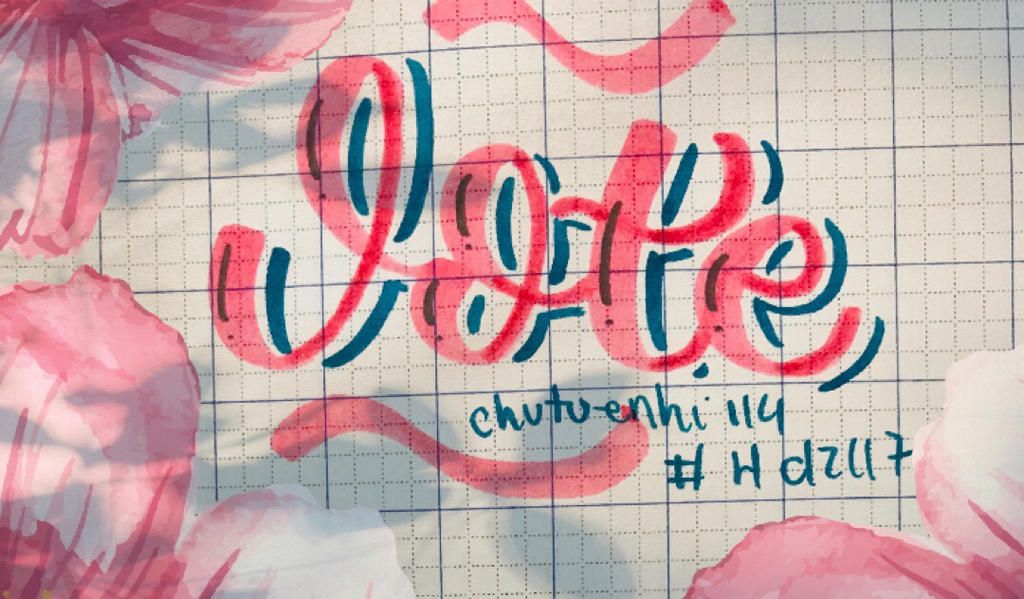 Vote
chutuenhi 114
# Hd2117